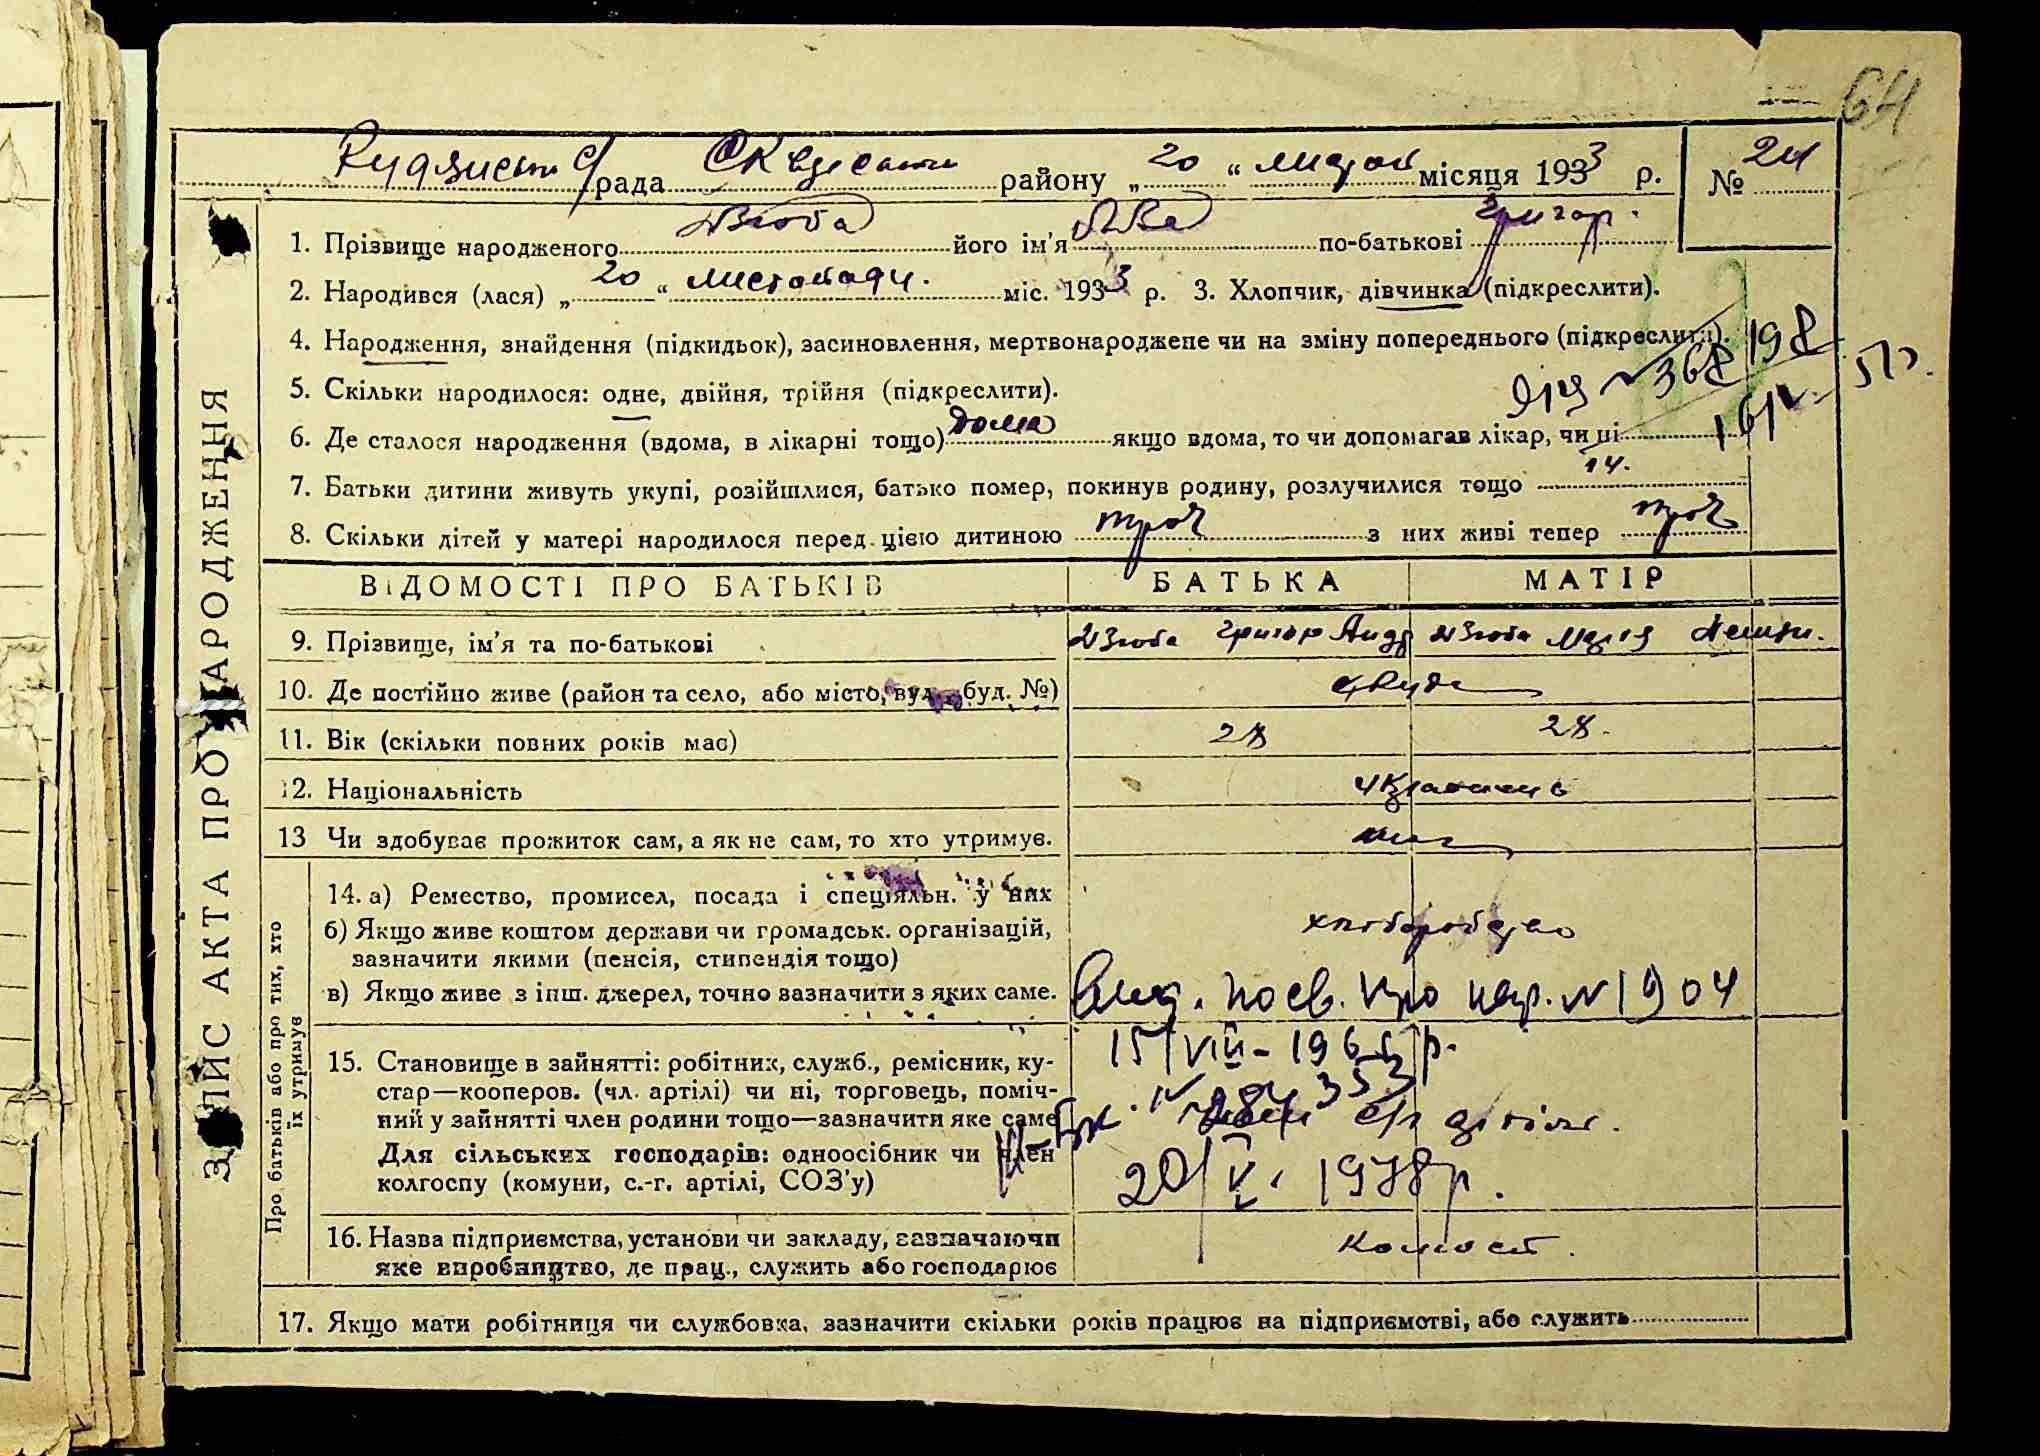 64
рада района „ 20 “ листоп місяця 1933 р. № 24
1. Прізвище народженого Дзюба його ім'я Єва по-батькові Григор.
2. Народився (лася) „ 20 “ листопада. міс. 1933 р. 3. Хлопчик, дівчинка (підкреслити).
4. Народження, знайдення (підкидьок), засиновлення, мертвонароджене чи на зміну попереднього (підкреслити).
5. Скільки народилося: одне, двійня, трійня (підкреслити).
№ 368 198
16/IV 57р.
6. Де сталося народження (вдома, в лікарні тощо) дома якщо вдома, то чи допомагав лікар, чи ні
7. Батьки дитини живуть укупі, розійшлися, батько помер, покинув родину, розлучилися тощо
8. Скільки дітей у матері народилося перед цією дитиною троє з них живі тепер троє
ВІДОМОСТІ ПРО БАТЬКІВ БАТЬКА МАТІР
9. Прізвище, ім'я та по-батькові Дзюба Григор Андр Дзюба Марія
10. Де постійно живе (район та село, або місто, вул., буд. №) с Руда
11. Вік (скільки повних років має) 28 28.
12. Національність українці
13 Чи здобуває прожиток сам, а як не сам, то хто утримує.
14. а) Ремество, промисел, посада і спеціяльн. у них хлоборобство
б) Якщо живе коштом держави чи громадськ. організацій,
зазначити якими (пенсія, стипендія тощо)
в) Якщо живе з інш. джерел, точно зазначити з яких саме.
Вид. посв. про нар. № 1904
15/VIII-1965 р.
15. Становище в зайнятті: робітник, служб., ремісник, ку-
стар—кооперов. (чл. артілі) чи ні, торговець, поміч-
ний у зайнятті член родини тощо—зазначити яке саме
Для сільських господарів: одноосібник чи член
колгоспу (комуни, с.-г. артілі, СОЗ'у)
353
с/г артіль.
20/V. 1978р.
16. Назва підприємства, установи чи закладу, зазначаючи
яке виробництво, де прац., служить або господарює
17. Якщо мати робітниця чи службовка, зазначити скільки років працює на підприємстві, або служить
ЗАПИС АКТА ПРО НАРОДЖЕННЯ
Про батьків або про тих, хто
їх утримує